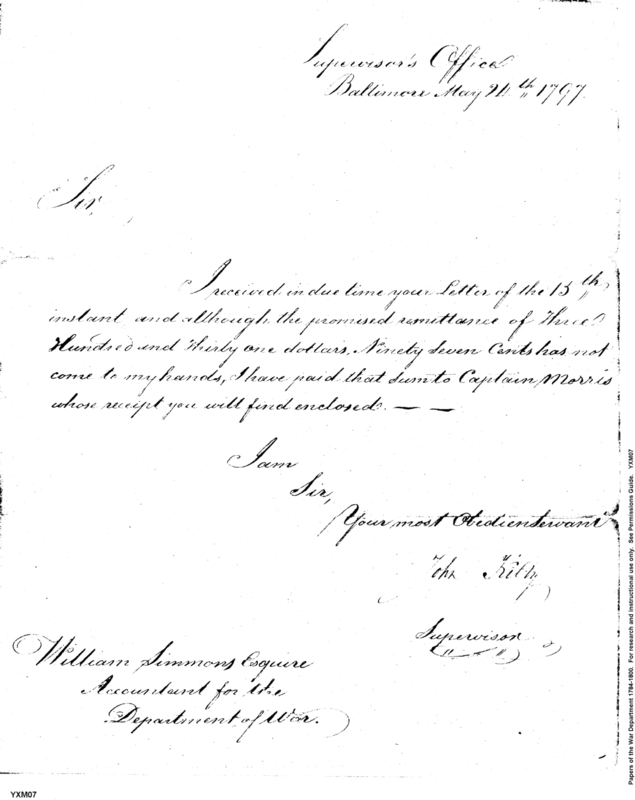 Supervisor's Office
Baltimore May 24th 1797.
Sir,
I received in due time your Letter of the 15th
instant and although the promised remittance of Three
Hundred and Thirty one dollars, Ninety Seven Cents has not
come to my hands, I have paid that sum to Captain Morris
whose receipt you will find enclosed. — —
I am
Sir,
Your most Obedient servant
John Kilty
Supervisor
William Simmons Esquire
Accountant for the
Department of War.
YXM07
Papers of the War Department 1784-1800. For research and instructional use only. See Permissions Guide. YXM07